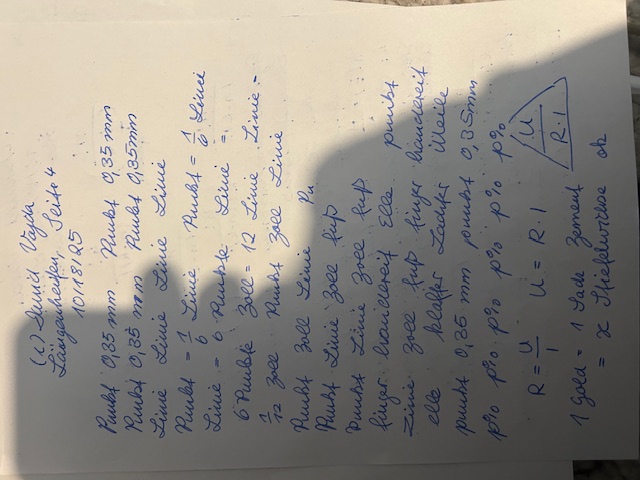 (c) David Vajda
Längeneinheiten, Seite 4
10/18/25
Punkt 0,35 mm Punkt 0,35 mm
Punkt 0,35 mm Punkt 0,35 mm
Linie Linie Linie Linie
Punkt = 1/6 Linie Punkt = 1/6 Linie
Linie = 6 Punkte Linie =
6 Punkte Zoll = 12 Linie Linie =
1/12 Zoll Punkt Zoll Linie
Punkt Zoll Linie Pu
Punkt Linie Zoll fuß
Punkt Linie Zoll fuß
finger handbreit Elle punkt
Linie Zoll fuß finger handbreit
elle klafter Lachter Meile
punkt 0,35 mm punkt 0,35mm
p% p% p% p% p%
R = U/I U = R·I U R·I
1 Gold = 1 Zement
= x ok